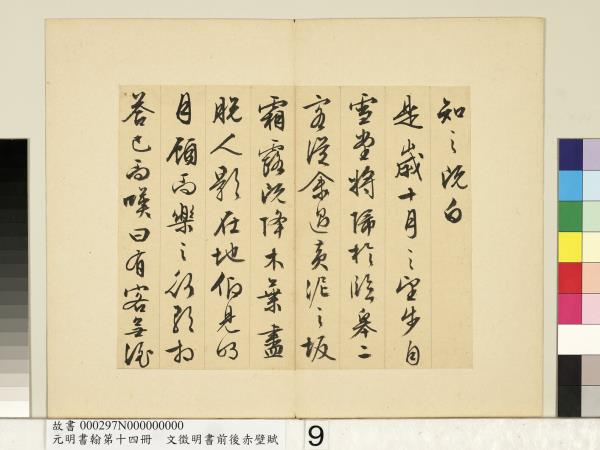 知之既白
是歲十月之望步自
雪堂將歸於臨皋二
客從余過黃泥之坂
霜露既降木葉盡
脫人影在地仰見明
月顧而樂之行歌相
答已而嘆曰有客無酒
故書 000297N000000000
元明書翰第十四冊 文徵明書前後赤壁賦
9